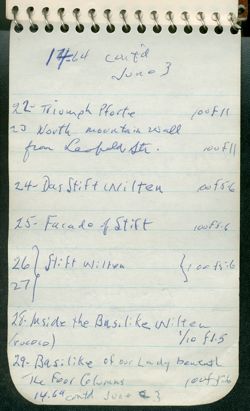 14.64 cont'd
June 3
22- Triumph Pforte 100 f11
23 North mountain wall
from Leopold Str. 100 f11
24- Das Stift Wilten 100 f5.6
25- Facade of Stift 100 f5.6
26 } Stift Wilten { 100 f5.6
27
28- Inside the Basilike Wilten
(rococo) 1/10 f1.5
29- Basilike of our Lady beneath
The Four Columns 100 f5.6
14.64 cont'd June 3